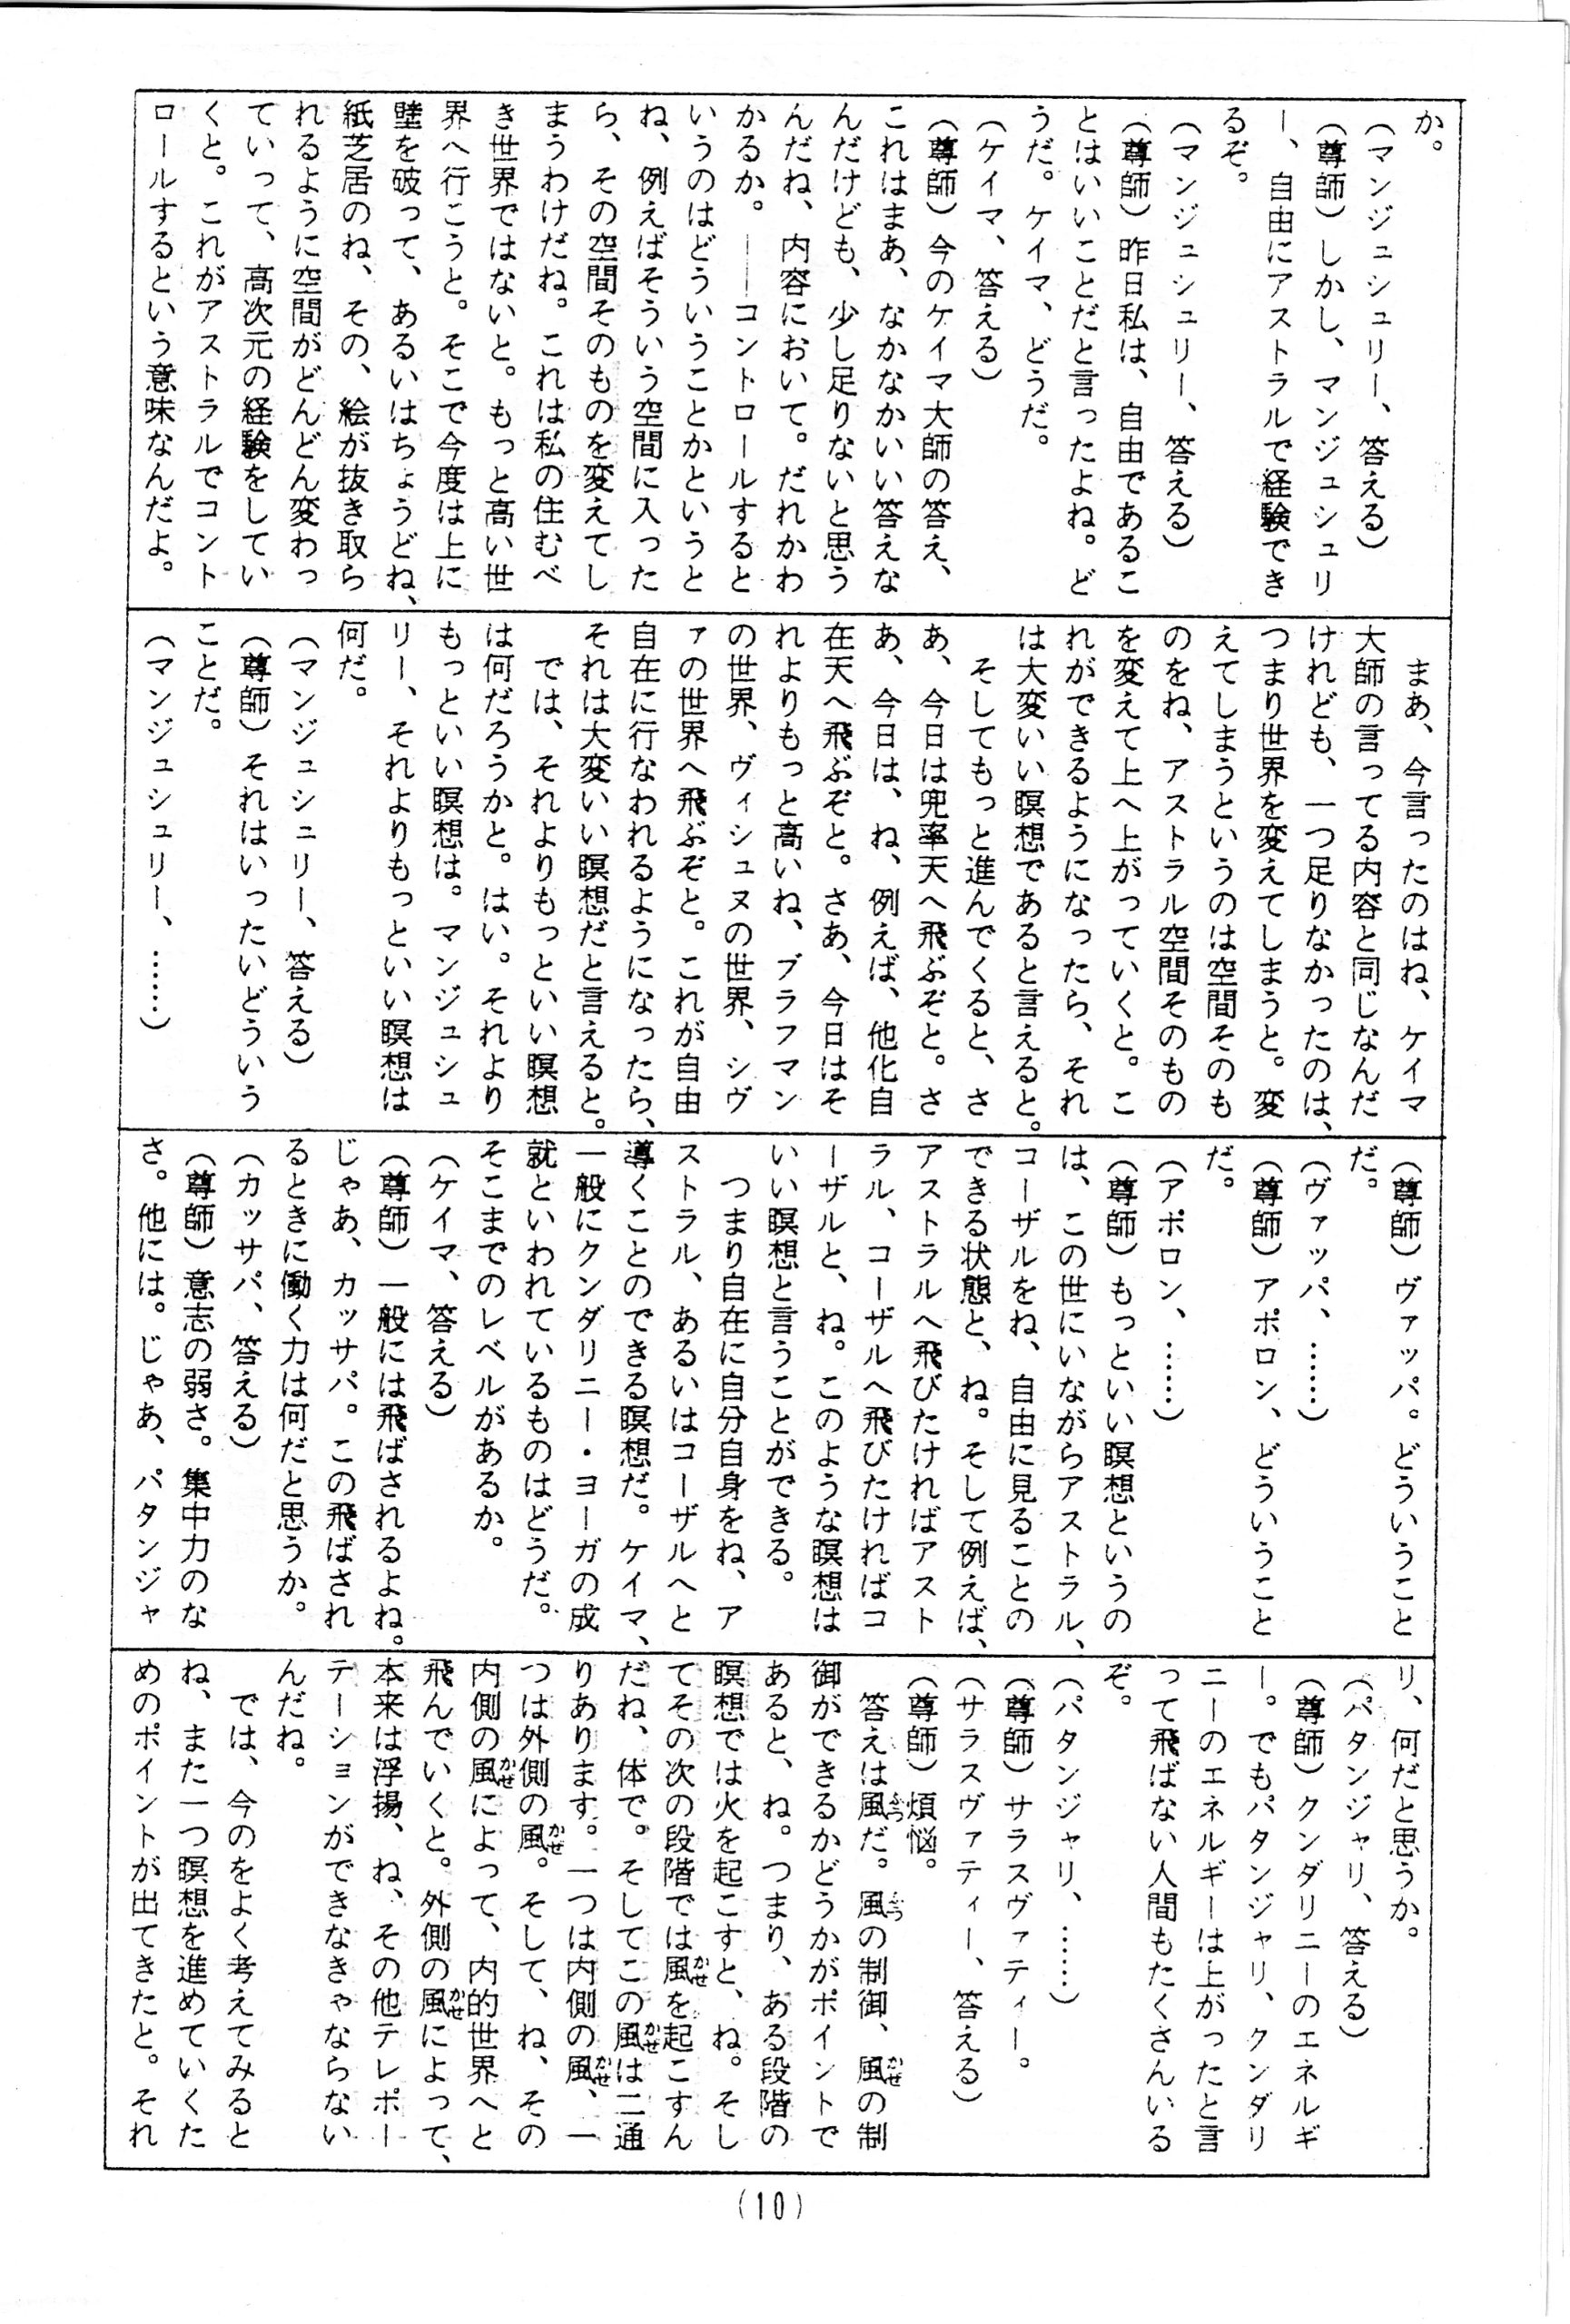 か。
（マンジュシュリー、答える）
（尊師）しかし、マンジュシュリ
ー、自由にアストラルで経験でき
るぞ。
（マンジュシュリー、答える）
（尊師）昨日私は、自由であるこ
とはいいことだと言ったよね。ど
うだ。ケイマ、どうだ。
（ケイマ、答える）
（尊師）今のケイマ大師の答え、
これはまあ、なかなかいい答えな
んだけども、少し足りないと思う
んだね、内容において。だれかわ
かるか。――コントロールすると
いうのはどういうことかというと
ね、例えばそういう空間に入った
ら、その空間そのものを変えてし
まうわけだね。これは私の住むべ
き世界ではないと。もっと高い世
界へ行こうと。そこで今度は上に
壁を破って、あるいはちょうどね、
紙芝居のね、その、絵が抜き取ら
れるように空間がどんどん変わっ
ていって、高次元の経験をしてい
くと。これがアストラルでコント
ロールするという意味なんだよ。
まあ、今言ったのはね、ケイマ
大師の言ってる内容と同じなんだ
けれども、一つ足りなかったのは、
つまり世界を変えてしまうと。変
えてしまうというのは空間そのも
のをね、アストラル空間そのもの
を変えて上へ上がっていくと。こ
れができるようになったら、それ
は大変いい瞑想であると言えると。
そしてもっと進んでくると、さ
あ、今日は兜率天へ飛ぶぞと。さ
あ、今日は、ね、例えば、他化自
在天へ飛ぶぞと。さあ、今日はそ
れよりもっと高いね、ブラフマン
の世界、ヴィシュヌの世界、シヴ
ァの世界へ飛ぶぞと。これが自由
自在に行なわれるようになったら、
それは大変いい瞑想だと言えると。
では、それよりもっといい瞑想
は何だろうかと。はい。それより
もっといい瞑想は。マンジュシュ
リー、それよりもっといい瞑想は
何だ。
（マンジュシュリー、答える）
（尊師）それはいったいどういう
ことだ。
（マンジュシュリー、……）
（尊師）ヴァッパ。どういうこと
だ。
（ヴァッパ、……）
（尊師）アポロン、どういうこと
だ。
（アポロン、……）
（尊師）もっといい瞑想というの
は、この世にいながらアストラル、
コーザルをね、自由に見ることの
できる状態と、ね。そして例えば、
アストラルへ飛びたければアスト
ラル、コーザルへ飛びたければコ
ーザルと、ね。このような瞑想は
いい瞑想と言うことができる。
つまり自在に自分自身をね、ア
ストラル、あるいはコーザルへと
導くことのできる瞑想だ。ケイマ、
一般にクンダリニー・ヨーガの成
就といわれているものはどうだ。
そこまでのレベルがあるか。
（ケイマ、答える）
（尊師）一般には飛ばされるよね。
じゃあ、カッサパ。この飛ばされ
るときに働く力は何だと思うか。
（カッサパ、答える）
（尊師）意志の弱さ。集中力のな
さ。他には。じゃあ、パタンジャ
リ、何だと思うか。
（パタンジャリ、答える）
（尊師）クンダリニーのエネルギ
ー。でもパタンジャリ、クンダリ
ニーのエネルギーは上がったと言
って飛ばない人間もたくさんいる
ぞ。
（パタンジャリ、……）
（尊師）サラスヴァティー。
（サラスヴァティー、答える）
（尊師）煩悩。
答えは風だ。風の制御、風の制
御ができるかどうかがポイントで
あると、ね。つまり、ある段階の
瞑想では火を起こすと、ね。そし
てその次の段階では風を起こすん
だね、体で。そしてこの風は二通
りあります。一つは内側の風、一
つは外側の風。そして、ね、その
内側の風によって、内的世界へと
飛んでいくと。外側の風によって、
本来は浮揚、ね、その他テレポー
テーションができなきゃならない
んだね。
では、今のをよく考えてみると
ね、また一つ瞑想を進めていくた
めのポイントが出てきたと。それ
(10)